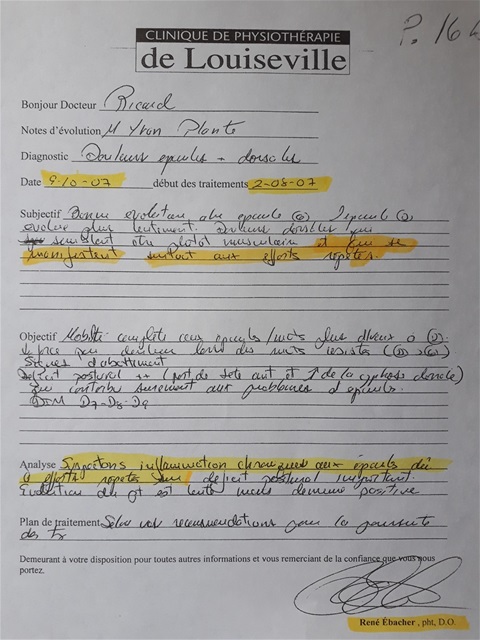 P. 164
CLINIQUE DE PHYSIOTHÉRAPIE
de Louiseville
Bonjour Docteur Ricard
Notes d'évolution M Yvan Plante
Diagnostic Douleurs épaules + dorsales
Date 9-10-07 début des traitements 2-08-07
Subjectif Bonne évolution épaule (G) L'épaule (D)
évolue plus lentement. Douleurs dorsales qui
semblent être plutôt musculaire et qui se
manifestent surtout aux efforts répétés.
Objectif Mobilité complète épaules / mais plus douleur à (D).
force douleur lors des mts résistés (D) > (G)
Signes d'abattement
Déficit postural ++ (port de tête ant et ↑ de la cyphose dorsale)
qui contribue surement aux problèmes d'épaules.
D7-D8-D9
Analyse Suspectons inflammation chronique aux épaules dû
à efforts répétés sur déficit postural important.
Évolution du pt est lente mais demeure positive
Plan de traitement Selon vos recommendations pour la poursuite
des tx
Demeurant à votre disposition pour toutes autres informations et vous remerciant de la confiance que vous nous
portez.
René Ébacher , pht, D.O.